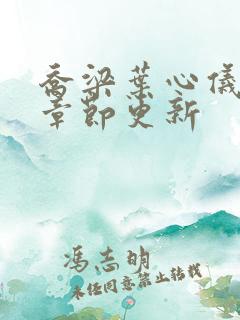 乔梁叶心仪
章节更新
冯志明
未经同意禁止转载